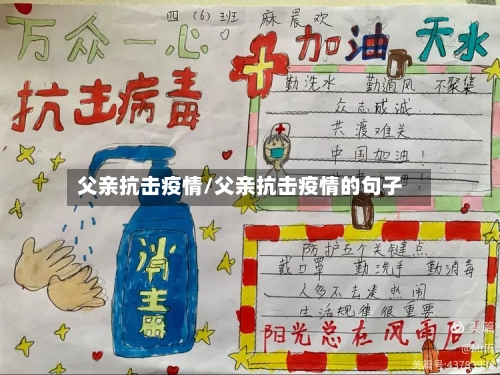 四（6）班 麻晨欢
万众一心
抗击病毒
加油 天水
勤洗水 勤通风 不聚集
众志成诚
共渡难关
中国加油！
父亲抗击疫情/父亲抗击疫情的句子
消主器
防护五个关键点
戴口罩 勤洗手 勤消毒
人多不去凑热闹
生活规律很重要
阳光总在风雨后.
美篇